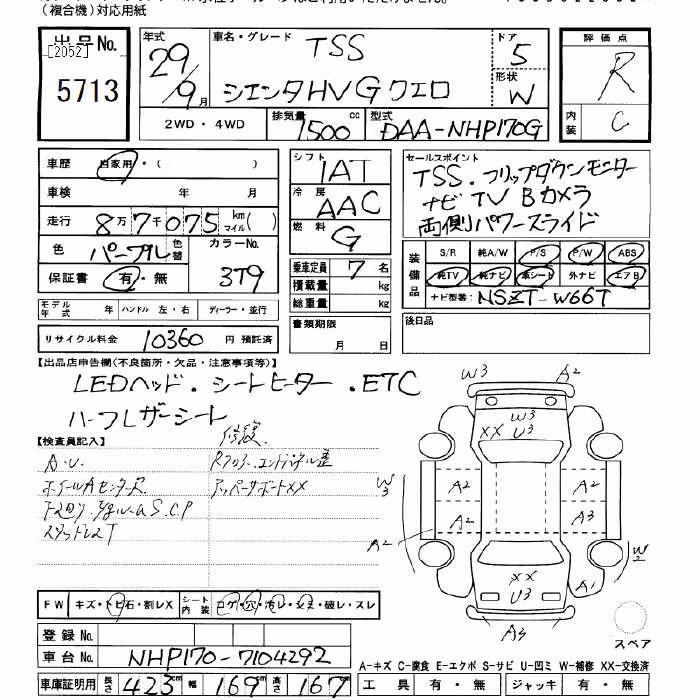 (複合機)対応用紙
出品No.
[2052]
5713
年式 29年 9月
車名・グレード TSS
シエンタHV G クエロ
ドア 5
形状 W
評価点 R
内装 C
2WD・4WD
排気量 1500 cc
型式 DAA-NHP170G
車歴 自家用・( )
車検 年 月
走行 8万7千075 km マイル( )
色 パープル 色替
カラーNo. 3T9
保証書 有・無
モデル年式 年 ハンドル 左・右 ディーラー・並行
リサイクル料金 10360 円 預託済
シフト 1AT
冷房 AAC
燃料 G
乗車定員 7 名
積載量 kg
総重量 kg
書類期限 月 日
セールスポイント
TSS.フリップダウンモニター
ナビ TV Bカメラ
両側パワースライド
装備品
S/R 純A/W P/S P/W ABS
純TV 純ナビ 革シート 外ナビ エアB
ナビ型番: NSZT-W66T
後日品
【出品店申告欄(不良箇所・欠品・注意事項等)】
LEDヘッド.シートヒーター.ETC
ハーフレザーシート
【検査員記入】
修復
A.U.
アッパーサポートXX
W3 A2
W3
XX U3
W3
A2 A2
A2 A3
A2
W2
XX
U3
A1
A3
スペア
FW キズ・トビ石・割レX
シート内装 コゲ・穴・汚レ・シミ・破レ・スレ
登録No.
車台No. NHP170-7104292
車庫証明用 長さ 423cm 幅 169cm 高さ 167cm
A-キズ C-腐食 E-エクボ S-サビ U-凹ミ W-補修 XX-交換済
工具 有・無 ジャッキ 有・無